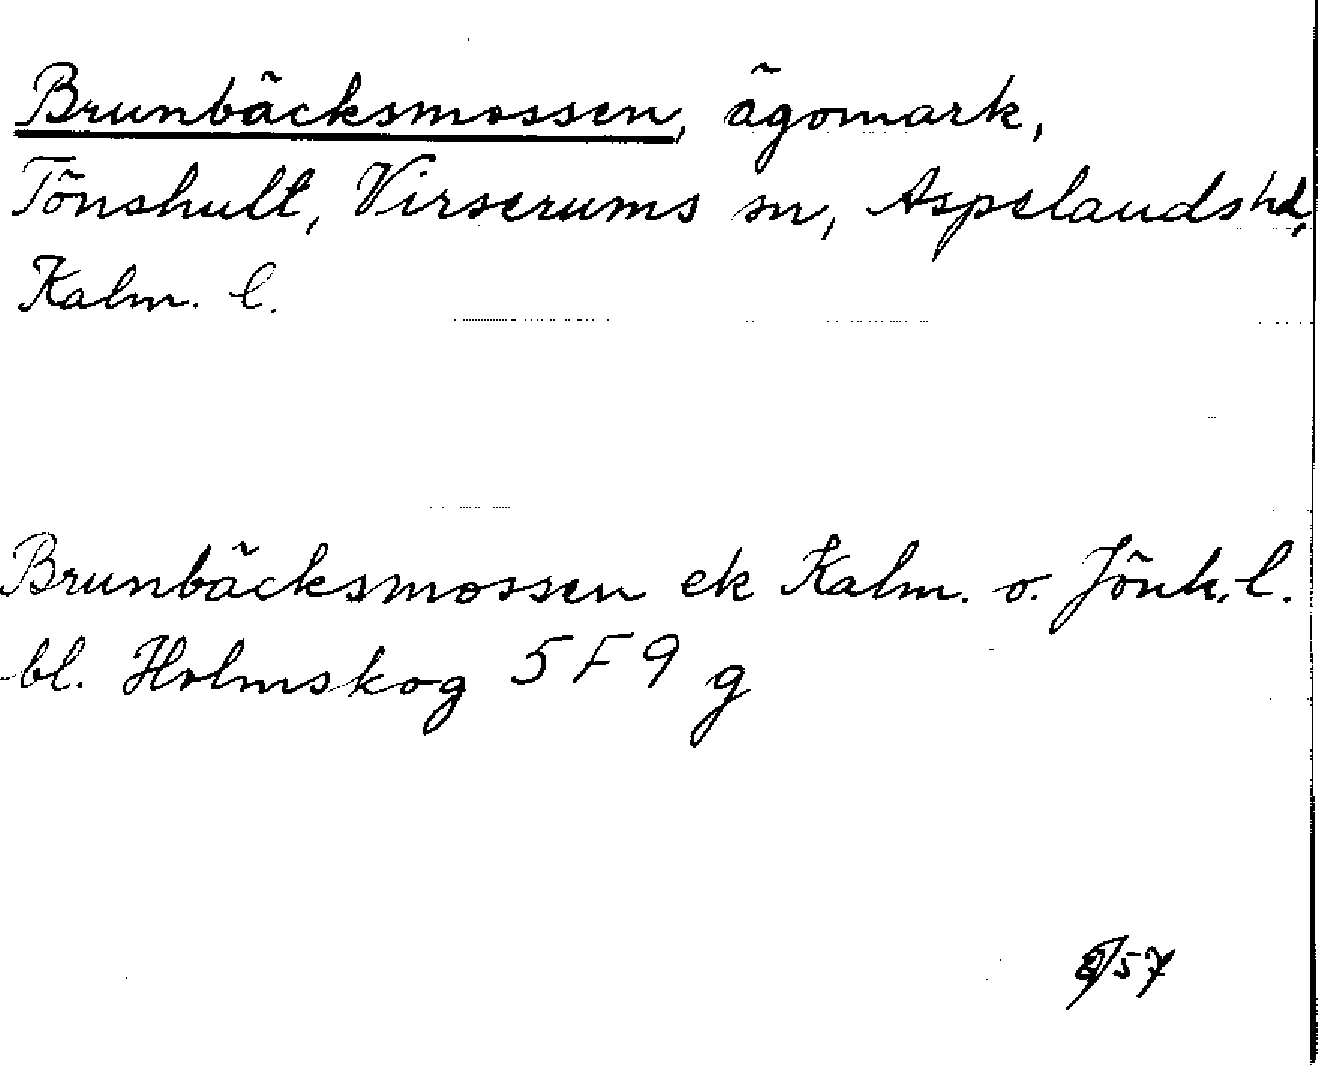 Brunbäcksmossen, ägomark,
Tönshult, Virserums sn, Aspelands hd,
Kalm. l.
Brunbäcksmossen ek Kalm. o. Jönk. l.
bl. Holmskog 5F9 g
57